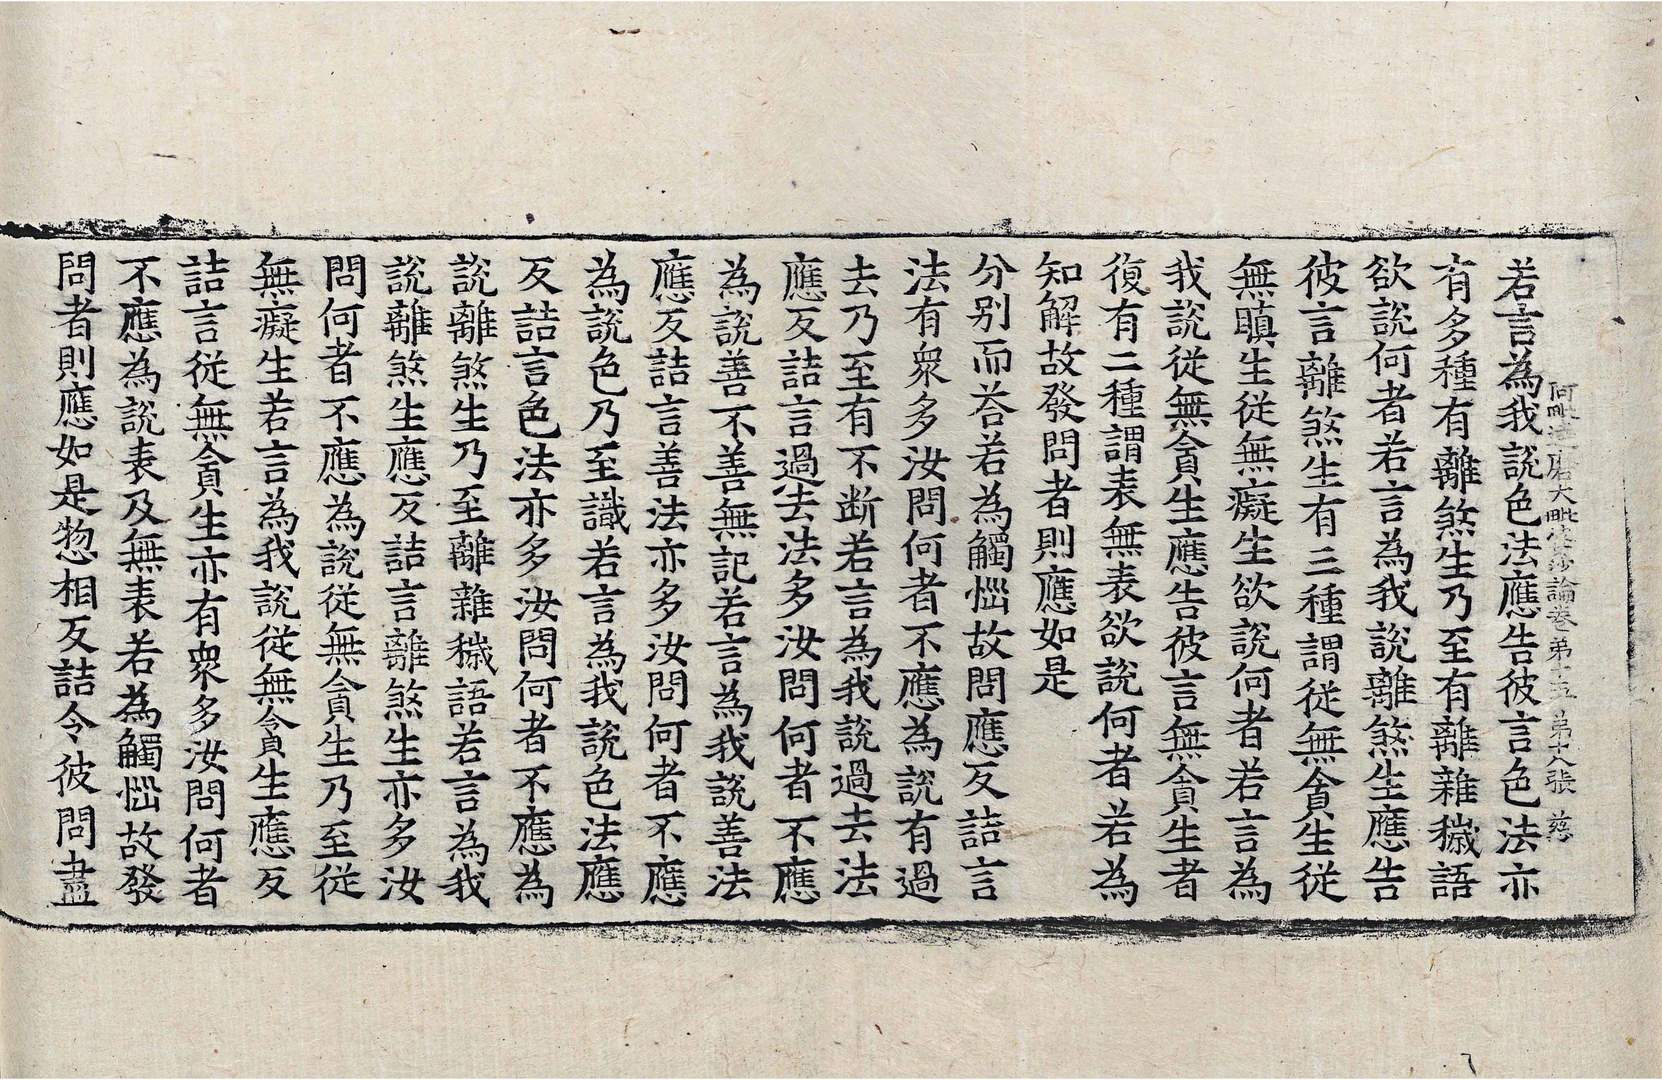 阿毗達磨大毗婆沙論卷苐十五　苐十八張　慈
若言為我說色法應告彼言色法亦
有多種有離煞生乃至有離雜穢語
欲說何者若言為我說離煞生應告
彼言離煞生有三種謂從無貪生從
無瞋生從無癡生欲說何者若言為
我說從無貪生應告彼言無貪生者
復有二種謂表無表欲說何者若為
知解故發問者則應如是
分別而荅若為觸惱故問應反詰言
法有衆多汝問何者不應為說有過
去乃至有不断若言為我說過去法
應反詰言過去法多汝問何者不應
為說善不善無記若言為我說善法
應反詰言善法亦多汝問何者不應
為說色乃至識若言為我說色法應
反詰言色法亦多汝問何者不應為
說離煞生乃至離雜穢語若言為我
說離煞生應反詰言離煞生亦多汝
問何者不應為說從無貪生乃至從
無癡生若言為我說從無貪生應反
詰言從無貪生亦有衆多汝問何者
不應為說表及無表若為觸惱故發
問者則應如是惣相反詰令彼問盡